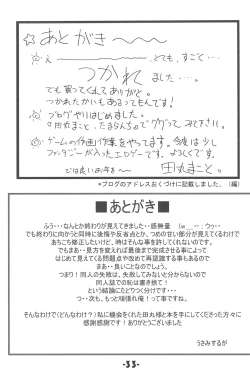 ☆あとがき～～～
☆え―――――――、とても、すごく…
つかれ ました…。
でも買ってくれてありがと。
つかれたかいもあるってもんです！
☆ブログやりはじめました。
☆ゲームの作画作業をやってます。今度は少し
ファンタジーが入ったエロゲーです。よろしくです。
では良いお年を～
田丸まこと
*ブログのアドレスおくづけに記載しました。（編）
■あとがき■
ふぅ・・なんとか終わりが見えてきました・・感無量　(w＿ー；ウゥ・・
でも終わりに向かうと同時に後悔や反省点とか、つめの甘い部分が見えてくるわけで
あちこち修正したいけど、時はそんな事を許してくれないのです。
でもまあ・・見方を変えれば最後まで出来る事によって
はじめて見えてくる問題点や改めて再認識する事もあるので
まあ・・良いことなのでしょう。
つまり！同人の失敗は、失敗してみないと分からないので
同人誌での恥は書き捨て！
という結論にたどりつく分けです・・・
つ・・次も、もっと頑張れ俺！って事ですね。
そんなわけで(どんなわけ？)私に機会をくれた田丸様と本を手にしてくださった方々に
感謝感謝です！ありがとうございました
うさみするが
-33-